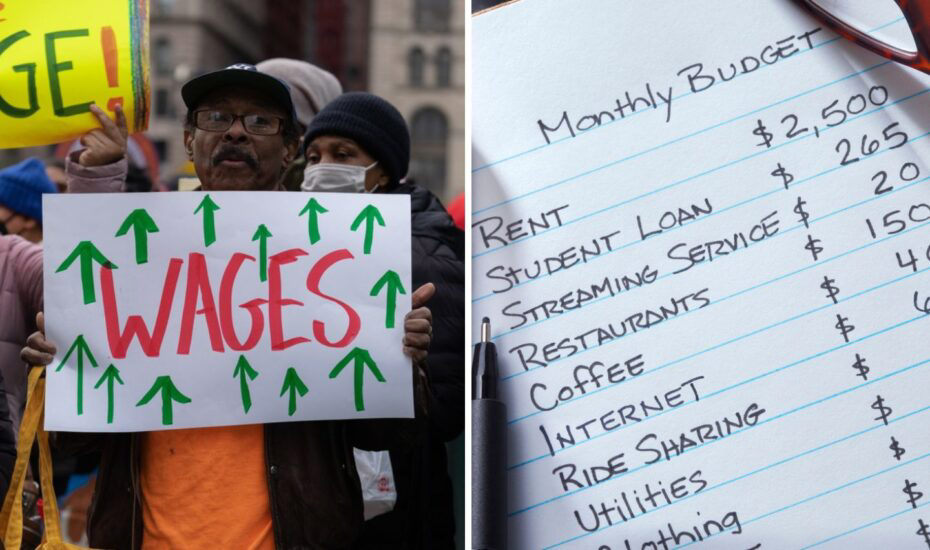 GE!
WAGES
Monthly BUDGET
RENT $2,500
STUDENT LOAN $ 265
STREAMING SERVICE $ 20
RESTAURANTS $ 150
COFFEE $ 4
INTERNET $
RIDE SHARING $
Utilities $
Clothing $
$
$